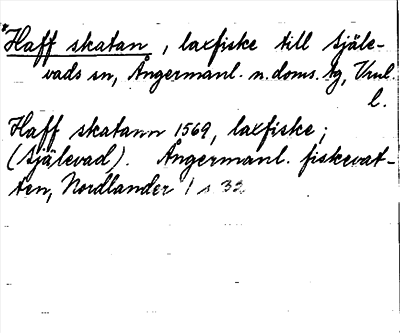 *Haff skatan, laxfiske till Själe-
vads sn, Ångermanl. n. doms. tg, Vnl.
l.
Haff skatann 1569, laxfiske;
(Själevad). Ångermanl. fiskevat-
ten, Nordlander 1 s 32